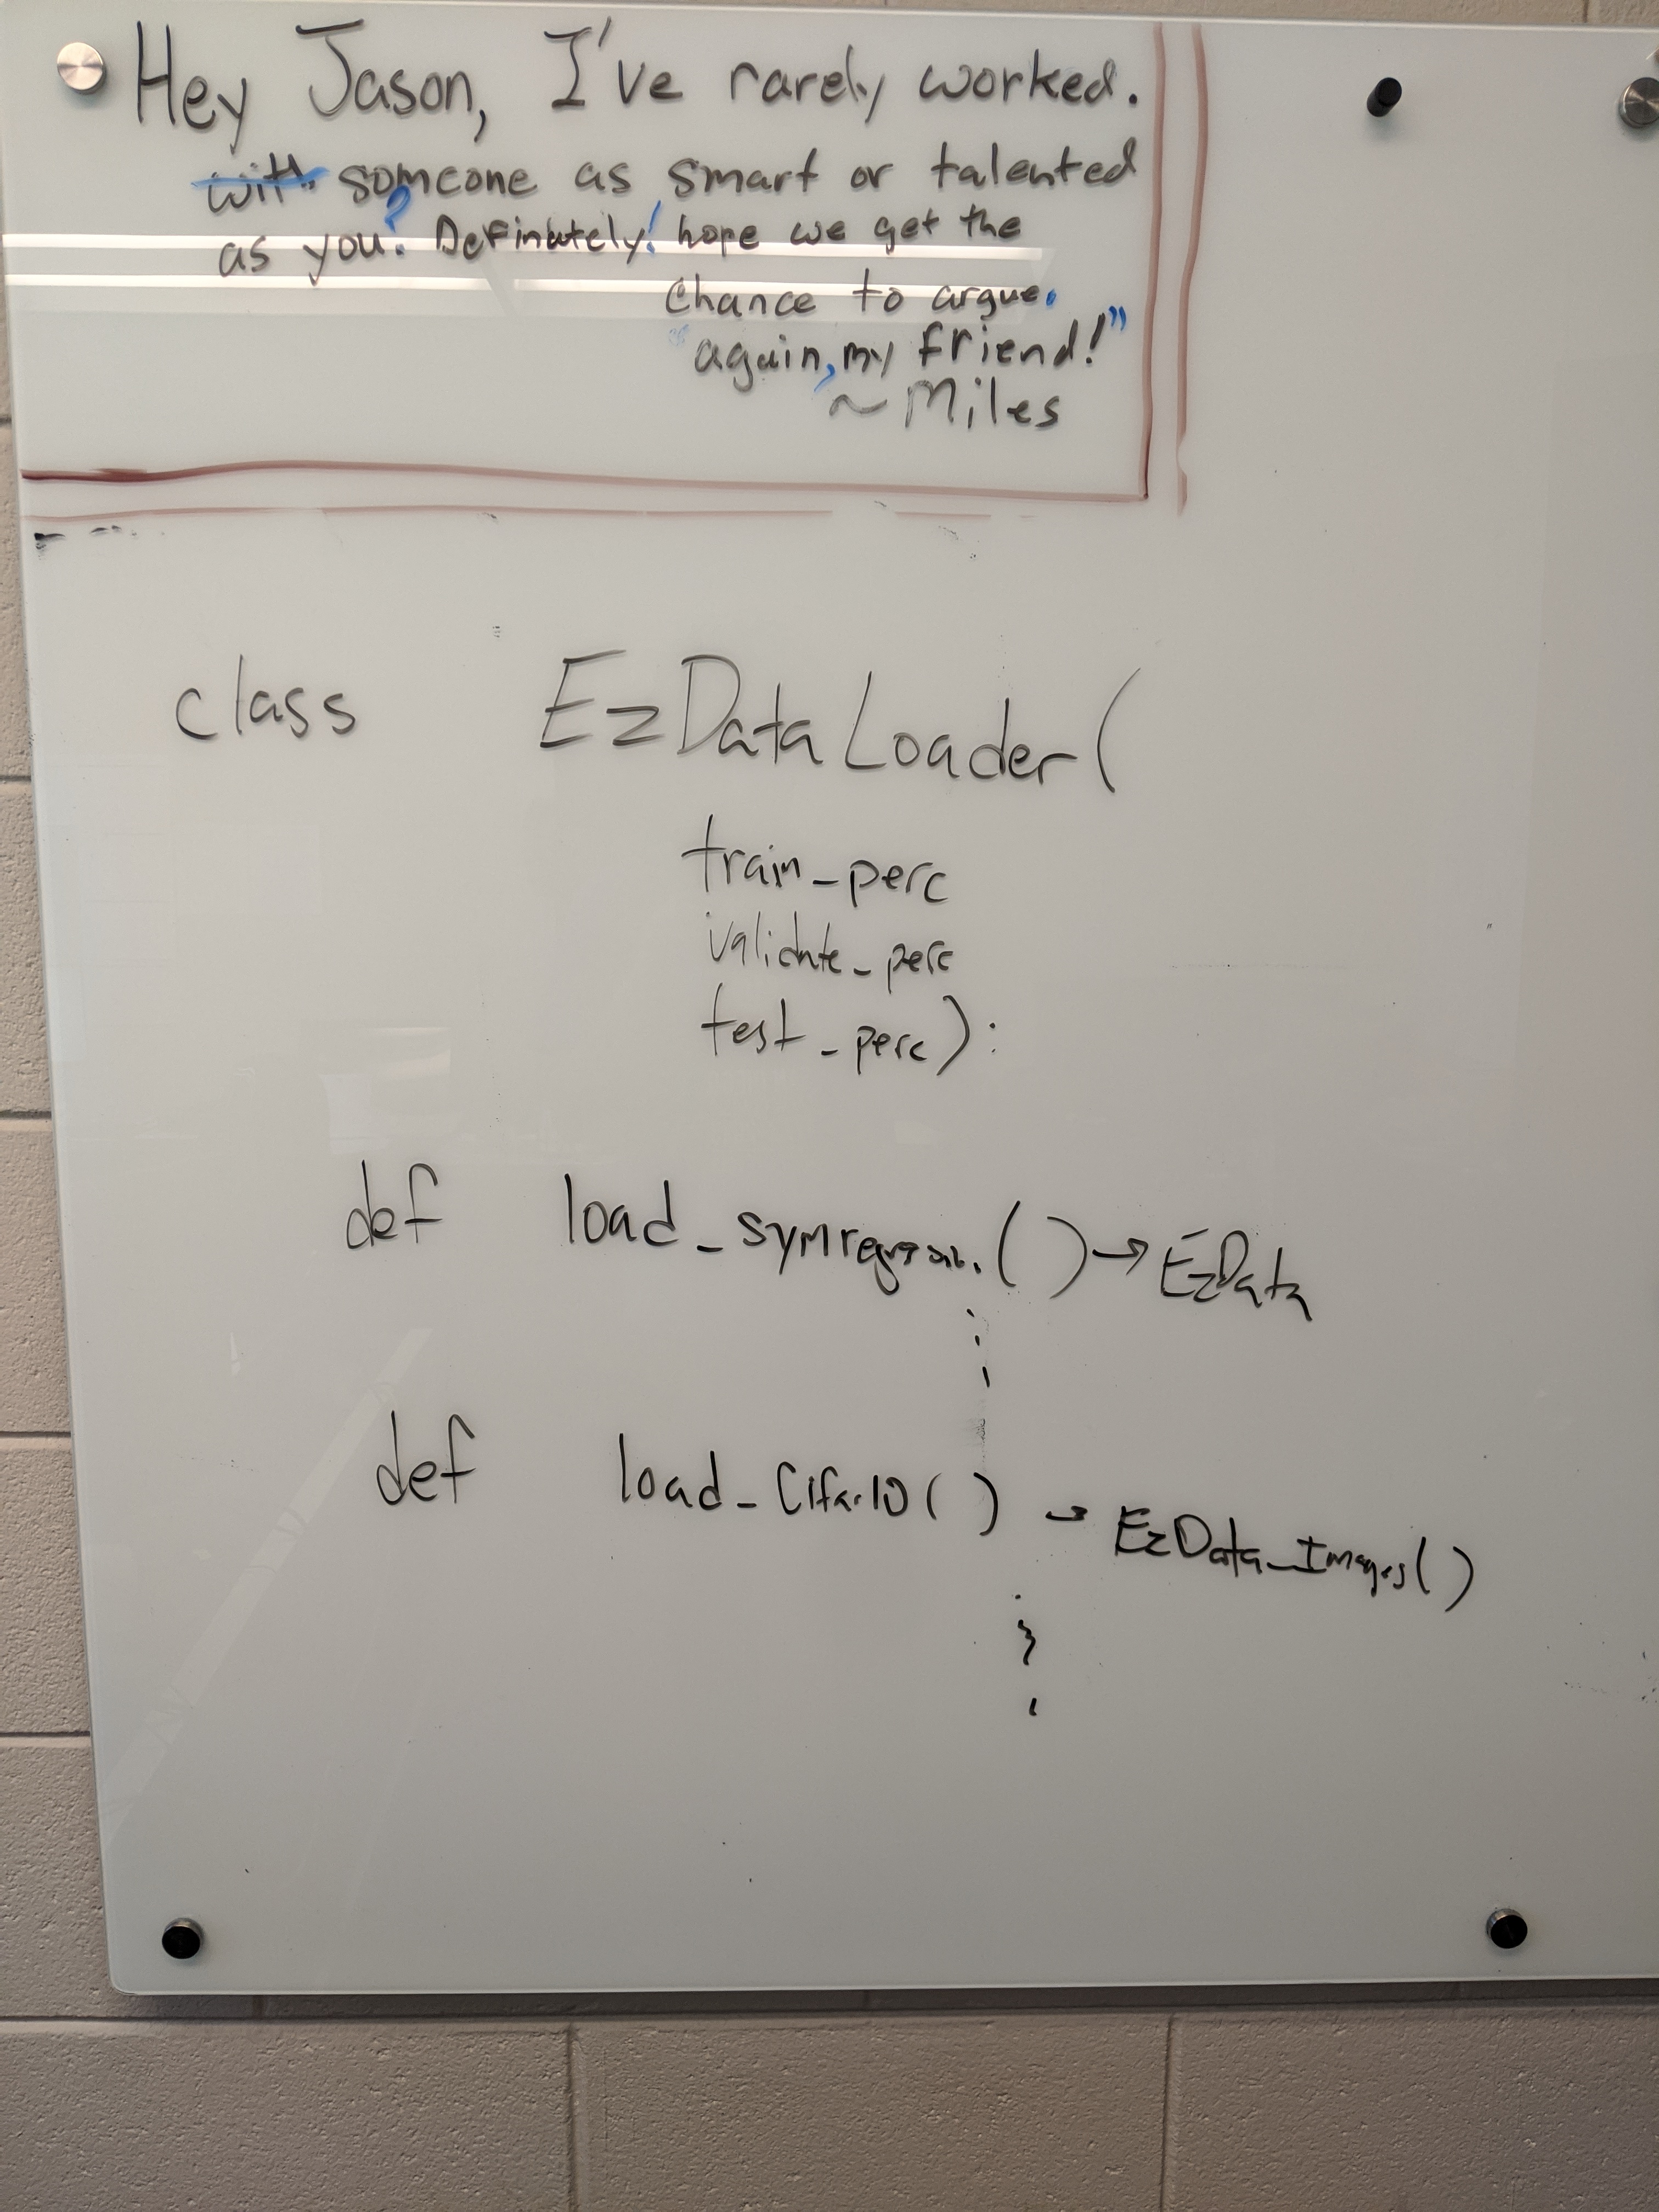 Hey Jason, I've rarely worked.
with someone as smart or talented
as you? Definately! hope we get the
chance to argue.
"again, my friend!"
~Miles
class EzDataLoader(
train_perc
validate_perc
test_perc):
def load_symregression.() → EzData
def load_Cifar10() → EzData_Images()